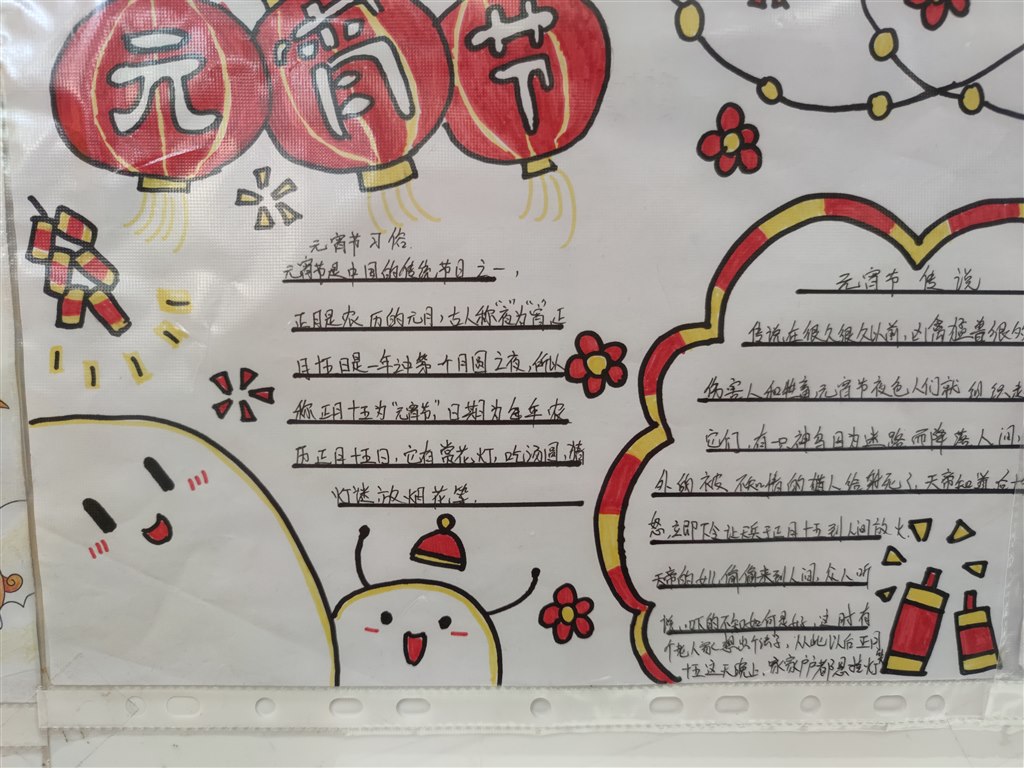 元宵节
元宵节习俗.
元宵节是中国的传统节日之一，
正月是农历的元月，古人称"夜"为"宵"，正
月十五日是一年中第一个月圆之夜，所以
称正月十五为"元宵节"日期为每年农
历正月十五日，它有赏花灯，吃汤圆，猜
灯谜放烟花等.
元宵节传说
传说在很久很久以前，凶禽猛兽很久
伤害人和牲畜，元宵节夜色，人们就组织起
它们，有一只神鸟因为迷路而降落人间，
外的被不知情的猎人给射死了，天帝知道后十
怒，立即下令让天兵于正月十五到人间放火
天帝的女儿偷偷来到人间，众人听
说，吓的不知如何是好，这时有
个老人家想出个法子，从此以后正月
十五这天晚上，家家户户都悬挂灯